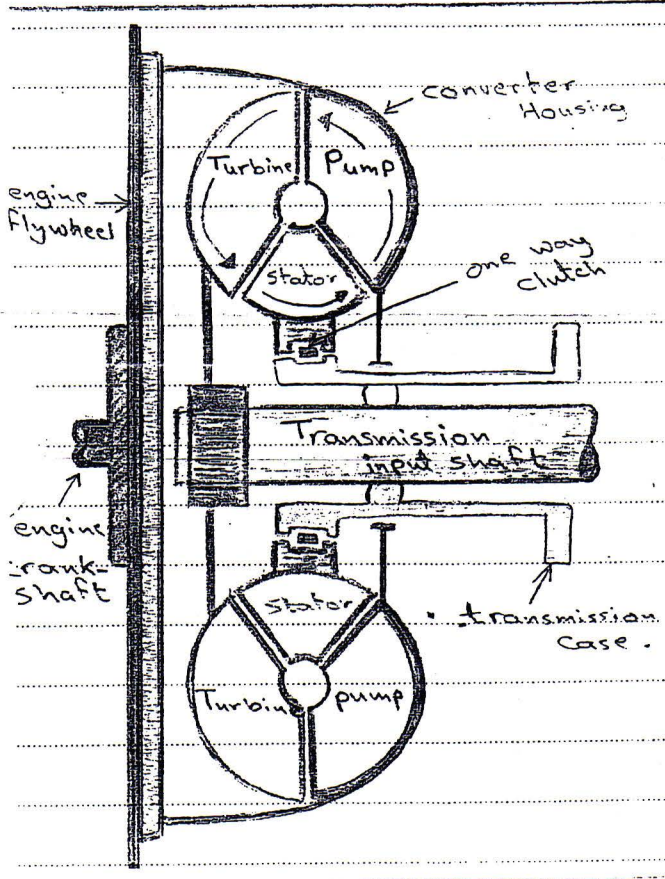 converter
Housing
Turbine
Pump
engine
flywheel
Stator
one way
clutch
Transmission
input shaft
engine
crank-
shaft
Stator
transmission
case.
Turbine
pump